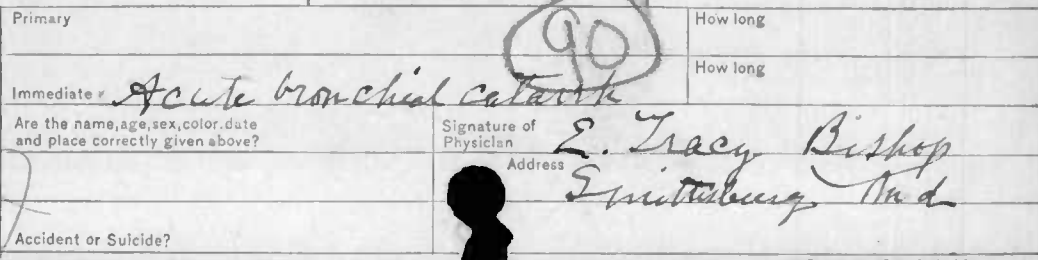 Primary
90
How long
How long
Immediate Acute bronchial catarrh
Are the name, age, sex, color. date
and place correctly given above?
Signature of
Physician E. Tracy Bishop
Address Smithsburg Md
Accident or Suicide?